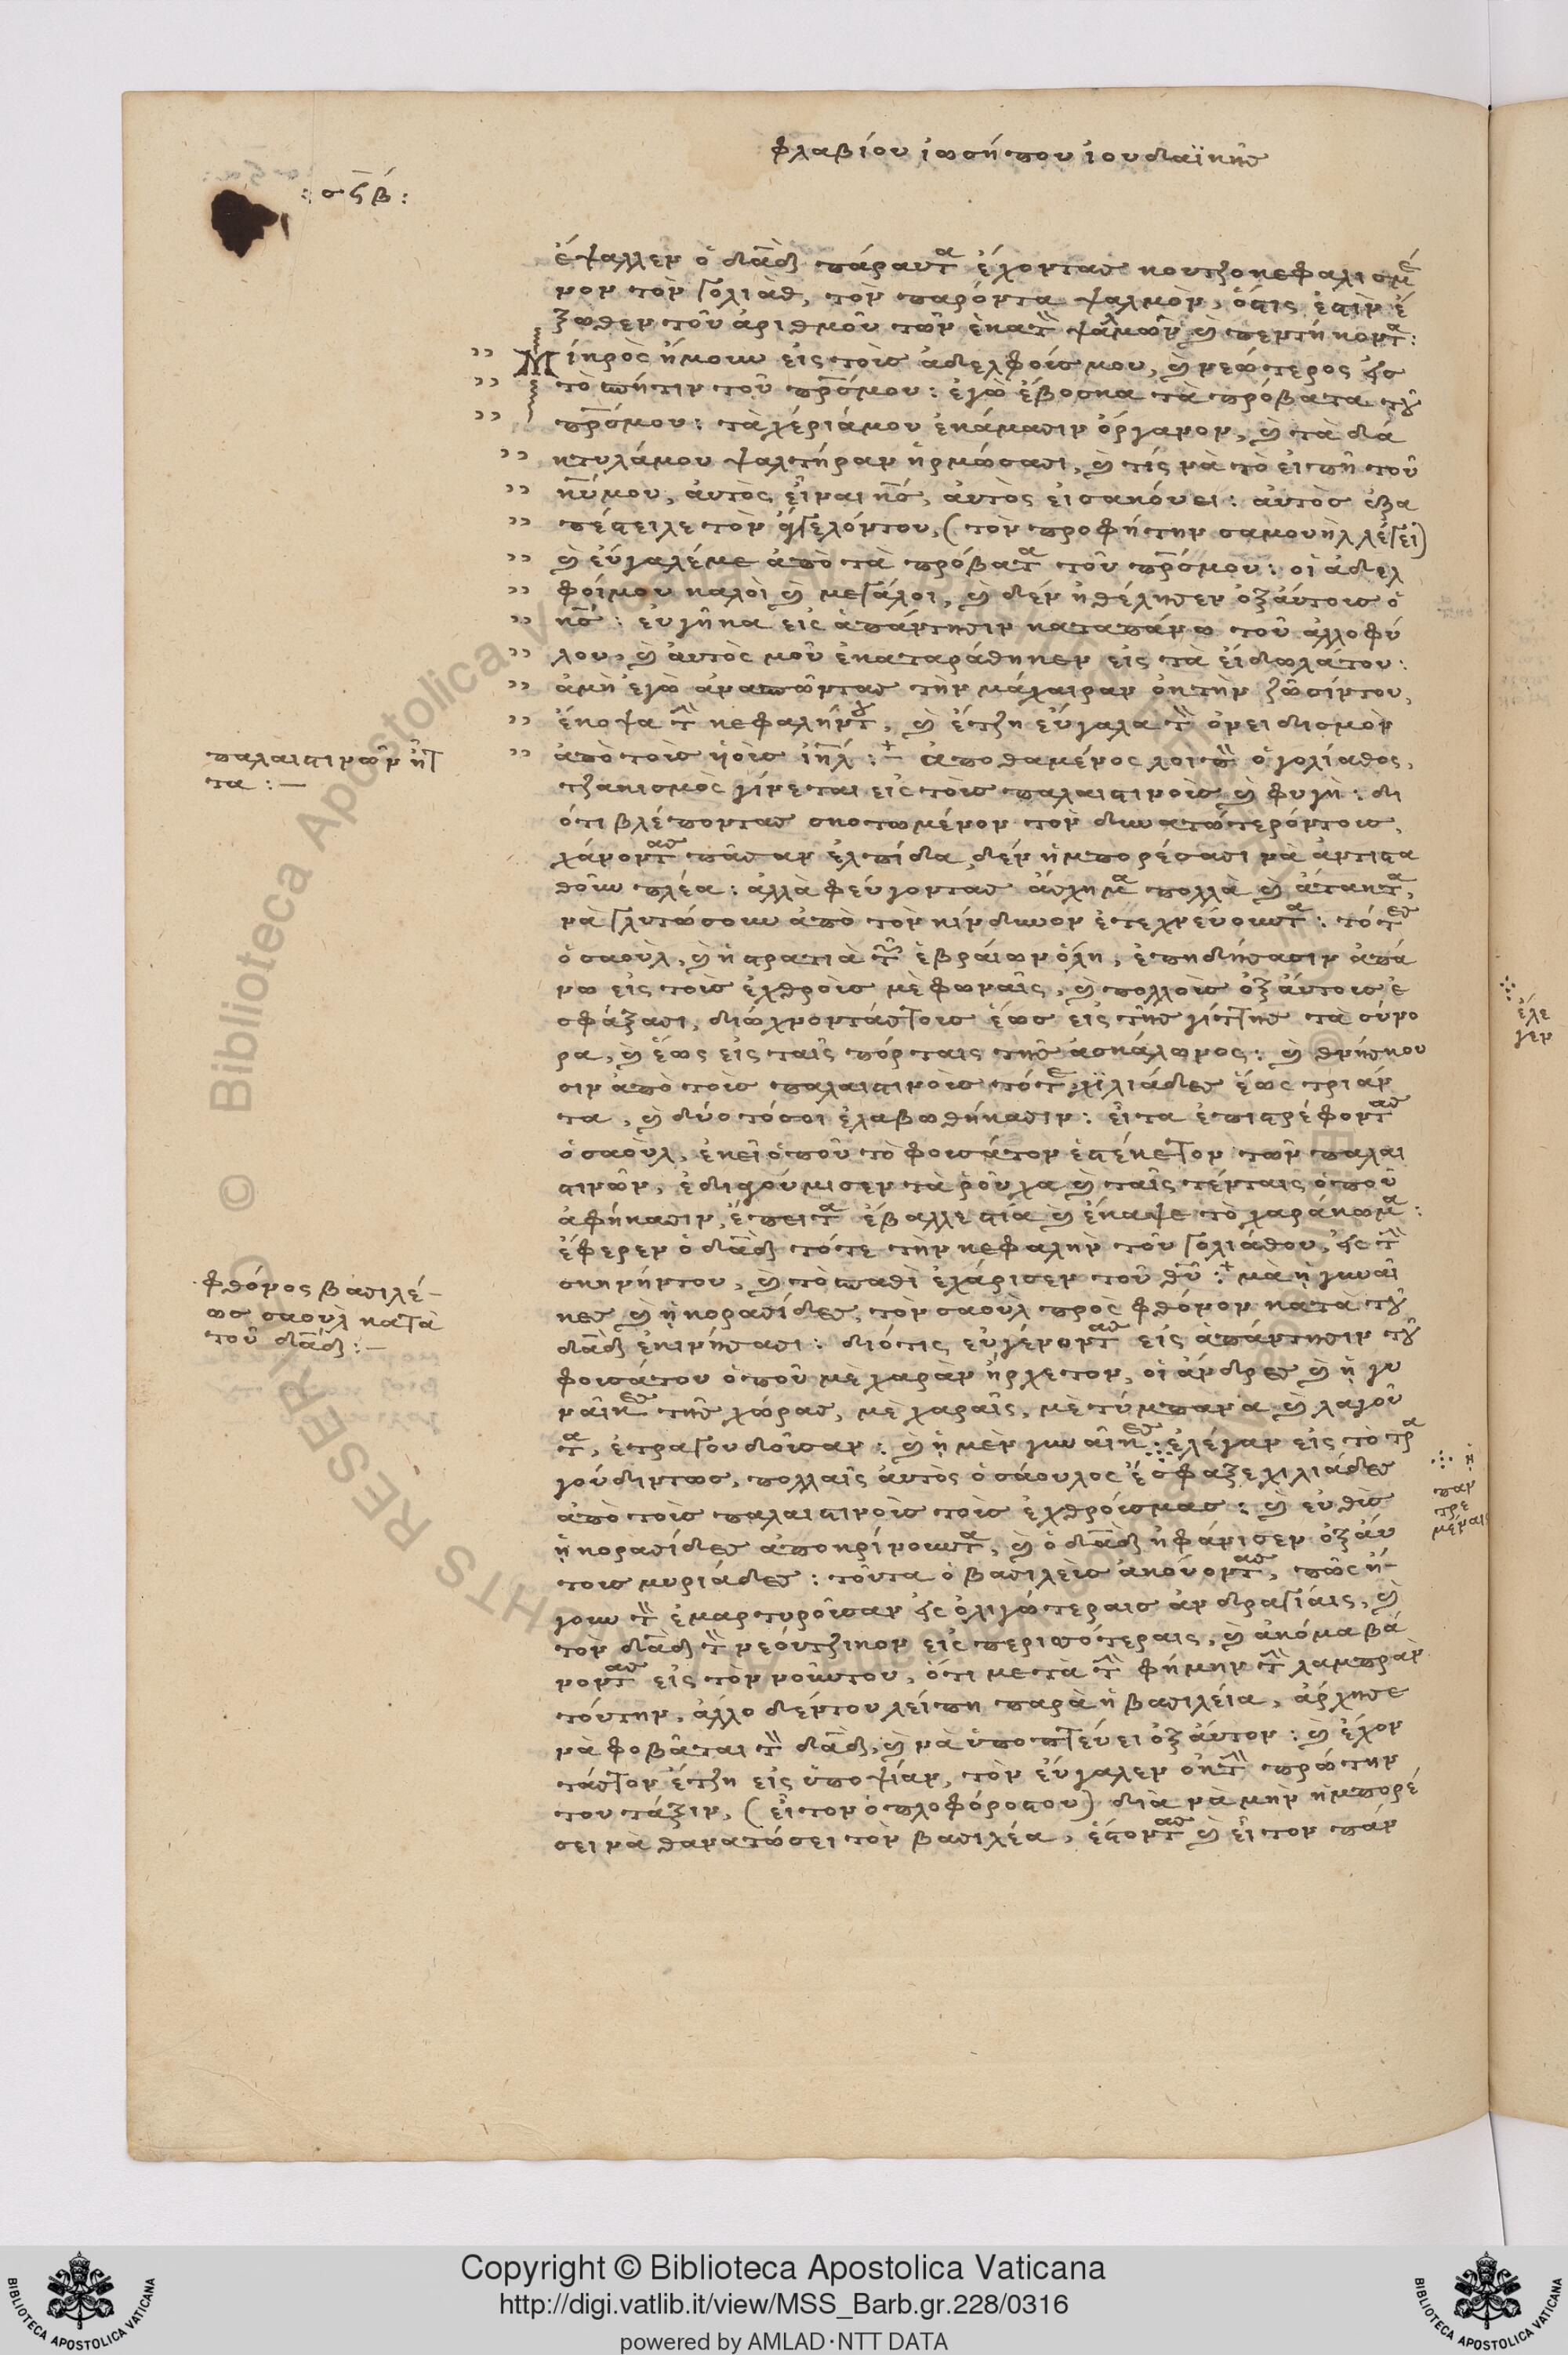 φλαβίου ἰωσήπου ἰουδαϊκῆς
: σϟβ :
ἔψαλλεν ὁ δᾱδ πάραυτα ἔχοντας κουτζοκεφαλισμέ
νον τὸν γολιὰθ, τὸν παρόντα ψαλμὸν, ὅστις ἐστὶν ἔ
ξωθεν τοῦ ἀριθμοῦ τῶν ἑκατὸν ψαλμῶν καὶ πεντήκοντα:
Μίκρὸς ἤμουν εἰς τοὺς ἀδελφούς μου, καὶ νεώτερος εἰς
τὸ σπήτιν τοῦ πρ̅ς μου: ἐγὼ ἔβοσκα τὰ πρόβατα τοῦ
πρ̅ς μου: τὰ χέριά μου ἐκάμασιν ὄργανον, καὶ τὰ δά
κτυλά μου ψαλτήραν ἡρμώσασι, καὶ τίς νὰ τὸ εἰπῆ τοῦ
κ̅υ μου, ἀυτὸς εἶναι κ̅ς, ἀυτὸς εἰσακούει: ἀυτὸς ἐξα
πέστειλε τὸν ἄγγελόν του, (τὸν προφήτην σαμουὴλ λέγει)
καὶ εὔγαλέ με ἀπὸ τὰ πρόβατα τοῦ πρ̅ς μου: οἱ ἀδελ
φοί μου καλοὶ καὶ μεγάλοι, καὶ δὲν ἠθέλησεν ὀξ ἀύτους ὁ
κ̅ς: ἐυγῆκα εἰς ἀπάντησιν καταπάνω τοῦ ἀλλοφύ
λου, καὶ ἀυτὸς μοῦ ἐκαταράθηκεν εἰς τὰ εἴδωλά του:
ἀμὴ ἐγὼ ἀνασπῶντας τὴν μάχαιραν ὀκ τὴν ζῶσίν του,
ἔκοψα τὴν κεφαλήν του, καὶ ἔτζη εὔγαλα τὸν ὀνειδισμὸν
ἀπὸ τοὺς ὑιοὺς ἰη̅λ :+ ἀποθαμένος λοιπὸν ὁ γολίαθος,
τζακισμὸς γίνεται εἰς τοὺς παλαιστινοὺς καὶ φυγὴ: δι
ότι βλέποντας σκοτωμένον τὸν δυνατώτερόν τους,
χάνοντας πᾶσαν ἐλπίδα, δὲν ἠμπορέσασι νὰ ἀντιστα
θοῦν πλέα: ἀλλὰ φεύγοντας ἄσχημα πολλὰ καὶ ἄτακτα,
νὰ γλυτώσουν ἀπὸ τὸν κίνδυνον ἐτεχνεύουντα: τότες
ὁ σαοὺλ, καὶ ἡ στρατιὰ τῶν ἑβραίων ὅλη, ἐπηδήσασιν ἀπά
νω εἰς τοὺς ἐχθροὺς μὲ φωναῖς, καὶ πολλοὺς ὀξ ἀύτους ἐ
σφάξασι, διώχνοντάς τους ἕως εἰς τῆς γίττης τὰ σύνο
ρα, καὶ ἕως εἰς ταῖς πόρταις τῆς ἀσκάλωνος: καὶ θνήσκου
σιν ἀπὸ τοὺς παλαιστινοὺς τότε χιλιάδες ἕως τριάν
τα, καὶ δύο τόσοι ἐλαβωθήκασιν: εἶτα ἐπιστρέφοντας
ὁ σαοὺλ, ἐκεῖ ὁποῦ τὸ φουσάτον ἐστέκετον τῶν παλαι
στινῶν, ἐδιαγούμισεν τὰ ροῦχα καὶ ταῖς τένταις ὁποῦ
ἀφήκασιν, ἔπειτα ἔβαλλε στία καὶ ἔκαψε τὸ χαράκωμα:
ἔφερεν ὁ δᾱδ τότε τὴν κεφαλὴν τοῦ γολιάθου, εἰς τὴν
σκηνήν του, καὶ τὸ σπαθὶ ἐχάρισεν τοῦ θ̅υ :+ μὰ ἡ γυναῖ
κες καὶ ἡ κορασίδες, τὸν σαοὺλ πρὸς φθόνον κατὰ τοῦ
δᾱδ ἐκινήσασι: διότις εὐγένοντας εἰς ἀπάντησιν τοῦ
φουσάτου ὁποῦ μὲ χαρὰν ἤρχετον, οἱ ἄνδρες καὶ ἡ γυ
ναῖκες τῆς χώρας, μὲ χαραῖς, μὲ τύμπανα καὶ λαγοῦ
τα, ἐτραγουδοῦσαν: καὶ ἡ μὲν γυναῖκες ἐλέγαν εἰς τὸ τρα
γούδιν τως, πολλαῖς ἀυτὸς ὁ σάουλος ἔσφαξε χιλιάδες
ἀπὸ τοὺς παλαιστινοὺς τοὺς ἐχθρούς μας: καὶ ευθὺς
ἡ κορασίδες ἀποκρίνουντα, καὶ ὁ δᾱδ ἠφάνισεν ὀξ ἀύ
τους μυριάδες: τοῦτα ὁ βασιλεὺς ἀκούοντας, πῶς ἤ
γουν τὸν ἐμαρτυροῦσαν εἰς ὀλιγώτεραις ἀνδραγίαις, καὶ
τὸν δᾱδ τὸν νεόυτζικον εἰς περισσότεραις, καὶ ἀκόμα βά
νοντας εἰς τὸν νοῦν του, ὅτι μετὰ τὴν φήμην τὴν λαμπρὰν
τούτην, ἄλλο δέν του λείπη παρὰ ἡ βασιλεία, ἄρχησε
νὰ φοβᾶται τὸν δᾱδ, καὶ νὰ ὑποπτεύει ὀξ ἀύτον: καὶ ἔχον
τάς τον ἔτζη εἰς ὑποψίαν, τὸν εὔγαλεν ὀκ τὴν πρώτην
του τάξιν, (εἶτον ὁπλοφόρος του) διὰ νὰ μὴν ἠμπορέ
σει νὰ θανατώσει τὸν βασιλέα, ἔστοντας καὶ εἶτον παν
παλαιστινῶν ἧτ
τα :—
φθόνος βασιλέ-
ως σαοὺλ κατὰ
τοῦ δᾱδ :—
ἡ
παν
τρε
μέναις
ἔλε
γεν
Copyright © Biblioteca Apostolica Vaticana
http://digi.vatlib.it/view/MSS_Barb.gr.228/0316
powered by AMLAD·NTT DATA
BIBLIOTECA APOSTOLICA VATICANA
BIBLIOTECA APOSTOLICA VATICANA